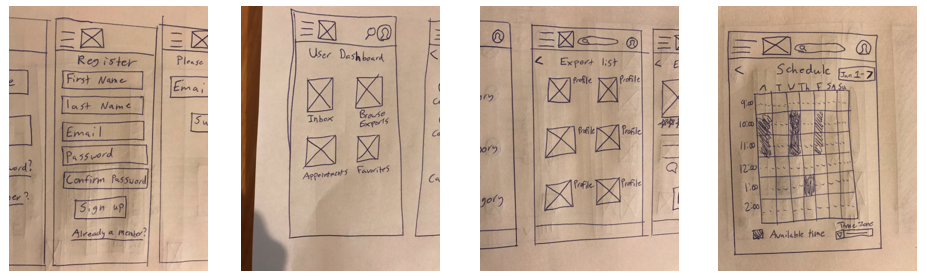 Register
First Name
last Name
Email
Password
Confirm Password
Sign up
Already a member?
Please
Emai
Su
User Dashboard
Inbox
Browse
Experts
Appointments
Favorites
Expert list
Profile
Profile
Profile
Profile
Profile
Profile
gory
ory
egory
Schedule
Jan 1-7
T W Th F Sa Su
9:00
10:00
11:00
12:00
1:00
2:00
Available time
Time Zone